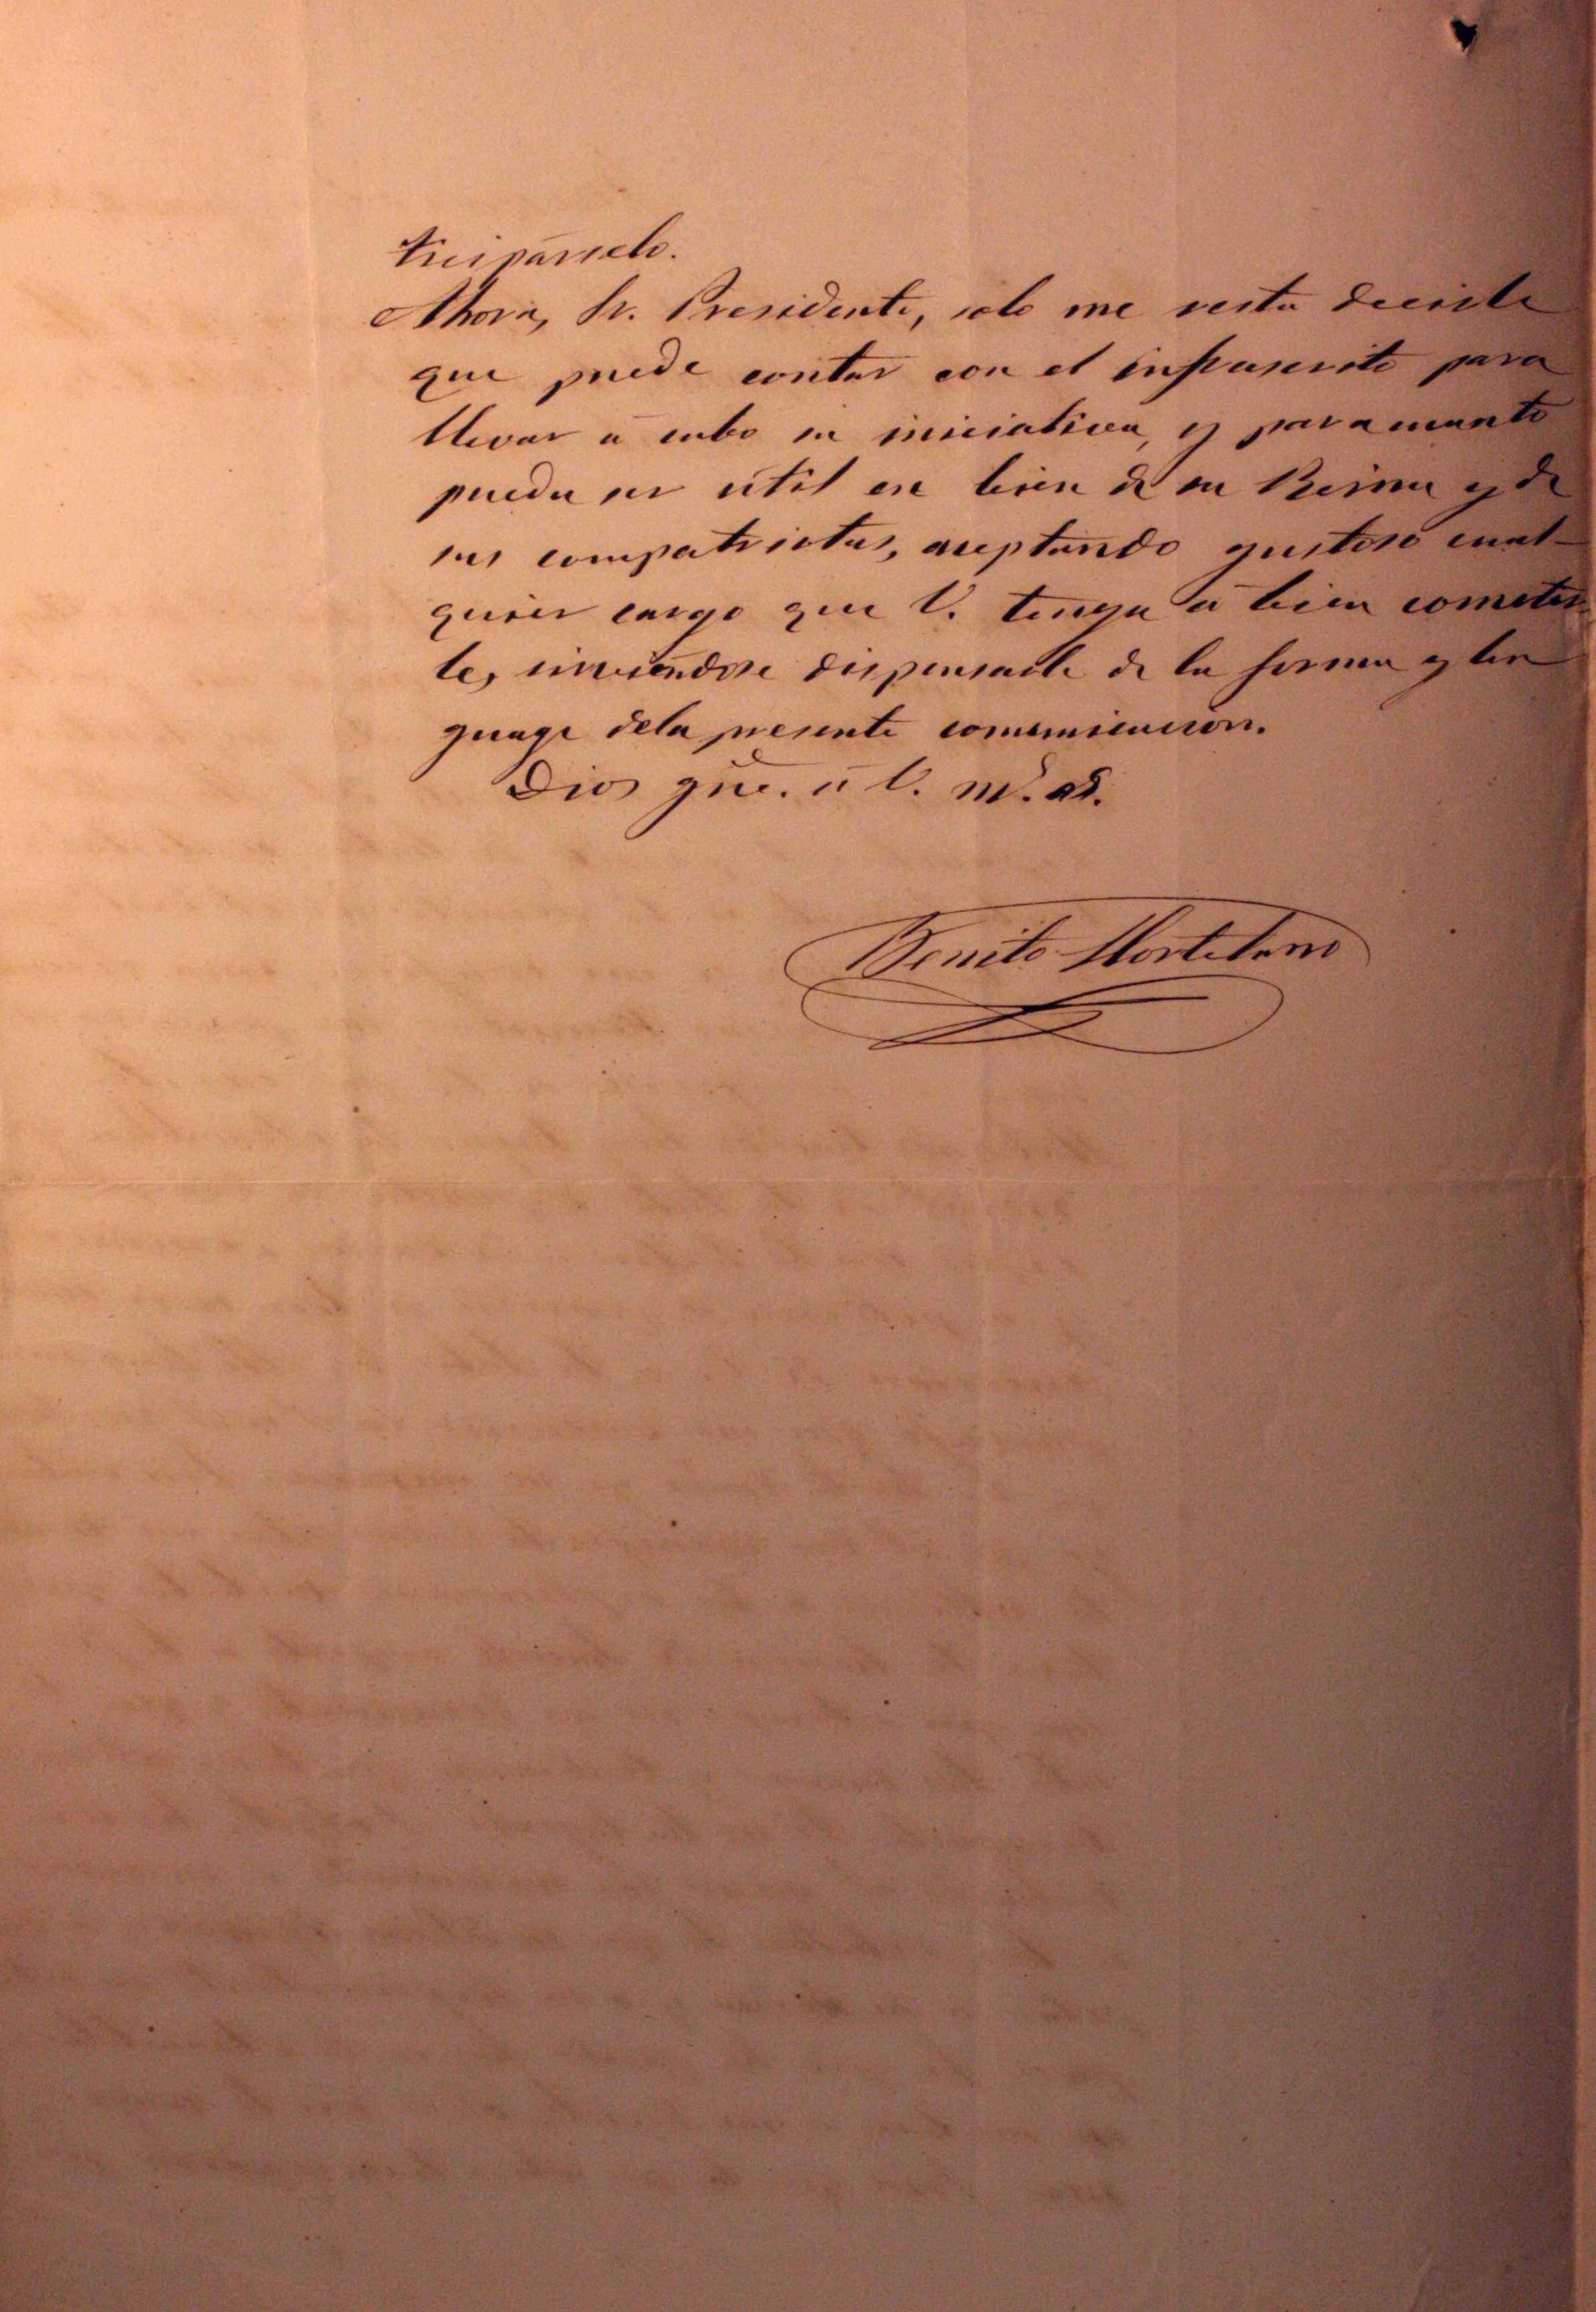 ticiparselo.
Ahora, Sr. Presidente, solo me resta decirle
que puede contar con el infrascrito para
llevar á cabo su iniciativa, y para cuanto
pueda ser útil en bien de su Reina y de
sus compatriotas, aceptando gustoso cual-
quier cargo que V. tenga á bien cometer
le, sirviéndose dispensarle de la forma y len
guage dela presente comunicacion.
Dios gue. á V. ms. as.
Benito Hortelano